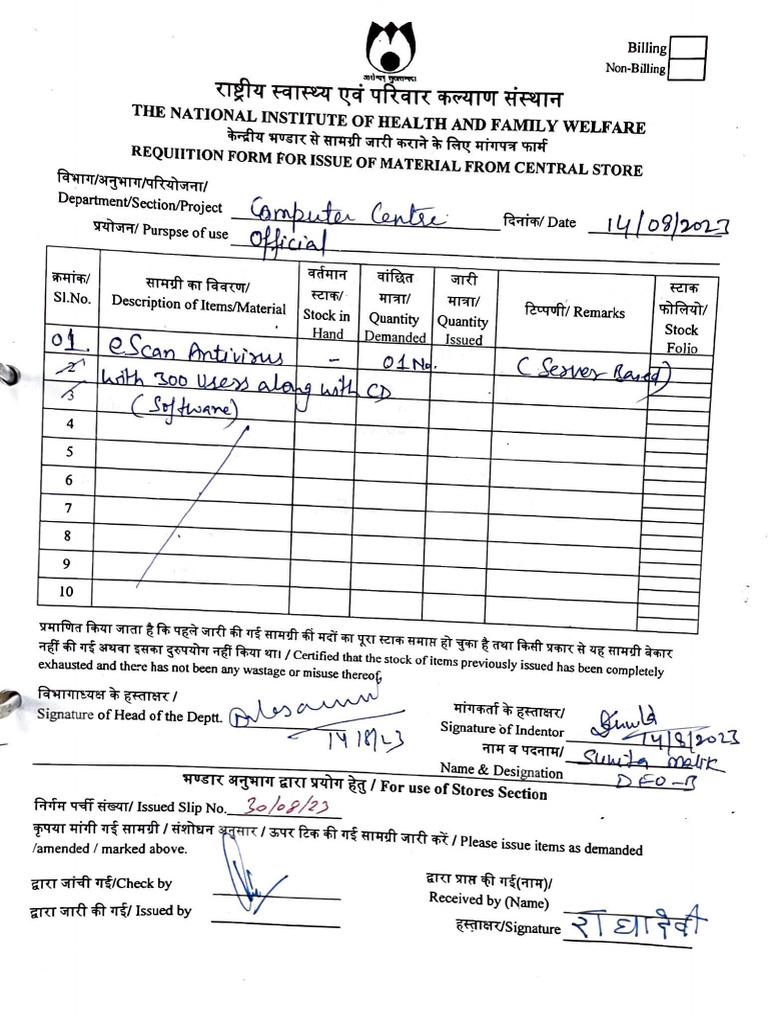 Billing
Non-Billing
आरोग्यम् सुखसम्पदा
राष्ट्रीय स्वास्थ्य एवं परिवार कल्याण संस्थान
THE NATIONAL INSTITUTE OF HEALTH AND FAMILY WELFARE
केन्द्रीय भण्डार से सामग्री जारी कराने के लिए मांगपत्र फार्म
REQUIITION FORM FOR ISSUE OF MATERIAL FROM CENTRAL STORE
विभाग/अनुभाग/परियोजना/
Department/Section/Project Computer Centre दिनांक/ Date 14/08/2023
प्रयोजन/ Purspse of use Official
क्रमांक/ Sl.No. सामग्री का विवरण/ Description of Items/Material वर्तमान स्टाक/ Stock in Hand वांछित मात्रा/ Quantity Demanded जारी मात्रा/ Quantity Issued टिप्पणी/ Remarks स्टाक फोलियो/ Stock Folio
01. eScan Antivirus - 01 No. (Server Based)
2 with 300 Users along with CD
3 (Software)
4
5
6
7
8
9
10
प्रमाणित किया जाता है कि पहले जारी की गई सामग्री की मदों का पूरा स्टाक समाप्त हो चुका है तथा किसी प्रकार से यह सामग्री बेकार
नहीं की गई अथवा इसका दुरुपयोग नहीं किया था। / Certified that the stock of items previously issued has been completely
exhausted and there has not been any wastage or misuse thereof.
विभागाध्यक्ष के हस्ताक्षर /
Signature of Head of the Deptt.
14/8/23
मांगकर्ता के हस्ताक्षर/
Signature of Indentor
14/8/2023
नाम व पदनाम/ Sunita Malik
Name & Designation DEO-B
भण्डार अनुभाग द्वारा प्रयोग हेतु / For use of Stores Section
निर्गम पर्ची संख्या/ Issued Slip No. 30/08/23
कृपया मांगी गई सामग्री / संशोधन अनुसार / ऊपर टिक की गई सामग्री जारी करें / Please issue items as demanded
/amended / marked above.
द्वारा जांची गई/Check by
द्वारा जारी की गई/ Issued by
द्वारा प्राप्त की गई(नाम)/
Received by (Name)
हस्ताक्षर/Signature राधादेवी